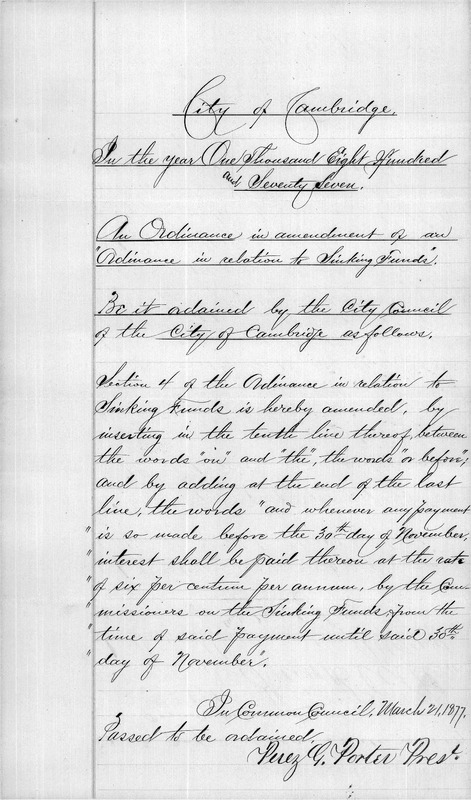 City of Cambridge.
In the year One Thousand Eight Hundred
and Seventy Seven.
An Ordinance in amendment of an
"Ordinance in relation to Sinking Funds".
Be it ordained by the City Council
of the City of Cambridge as follows.
Section 4 of the Ordinance in relation to
Sinking Funds is hereby amended, by
inserting in the tenth line thereof, between
the words "on" and "the", the words "or before";
and by adding at the end of the last
line, the words "and whenever any payment
" is so made before the 30th day of November,
" interest shall be paid thereon at the rate
" of six per centum per annum, by the Com-
" missioners on the Sinking Funds from the
" time of said payment until said 30th
" day of November".
In Common Council, March 21, 1877.
Passed to be ordained.
Perez G. Porter Prest.